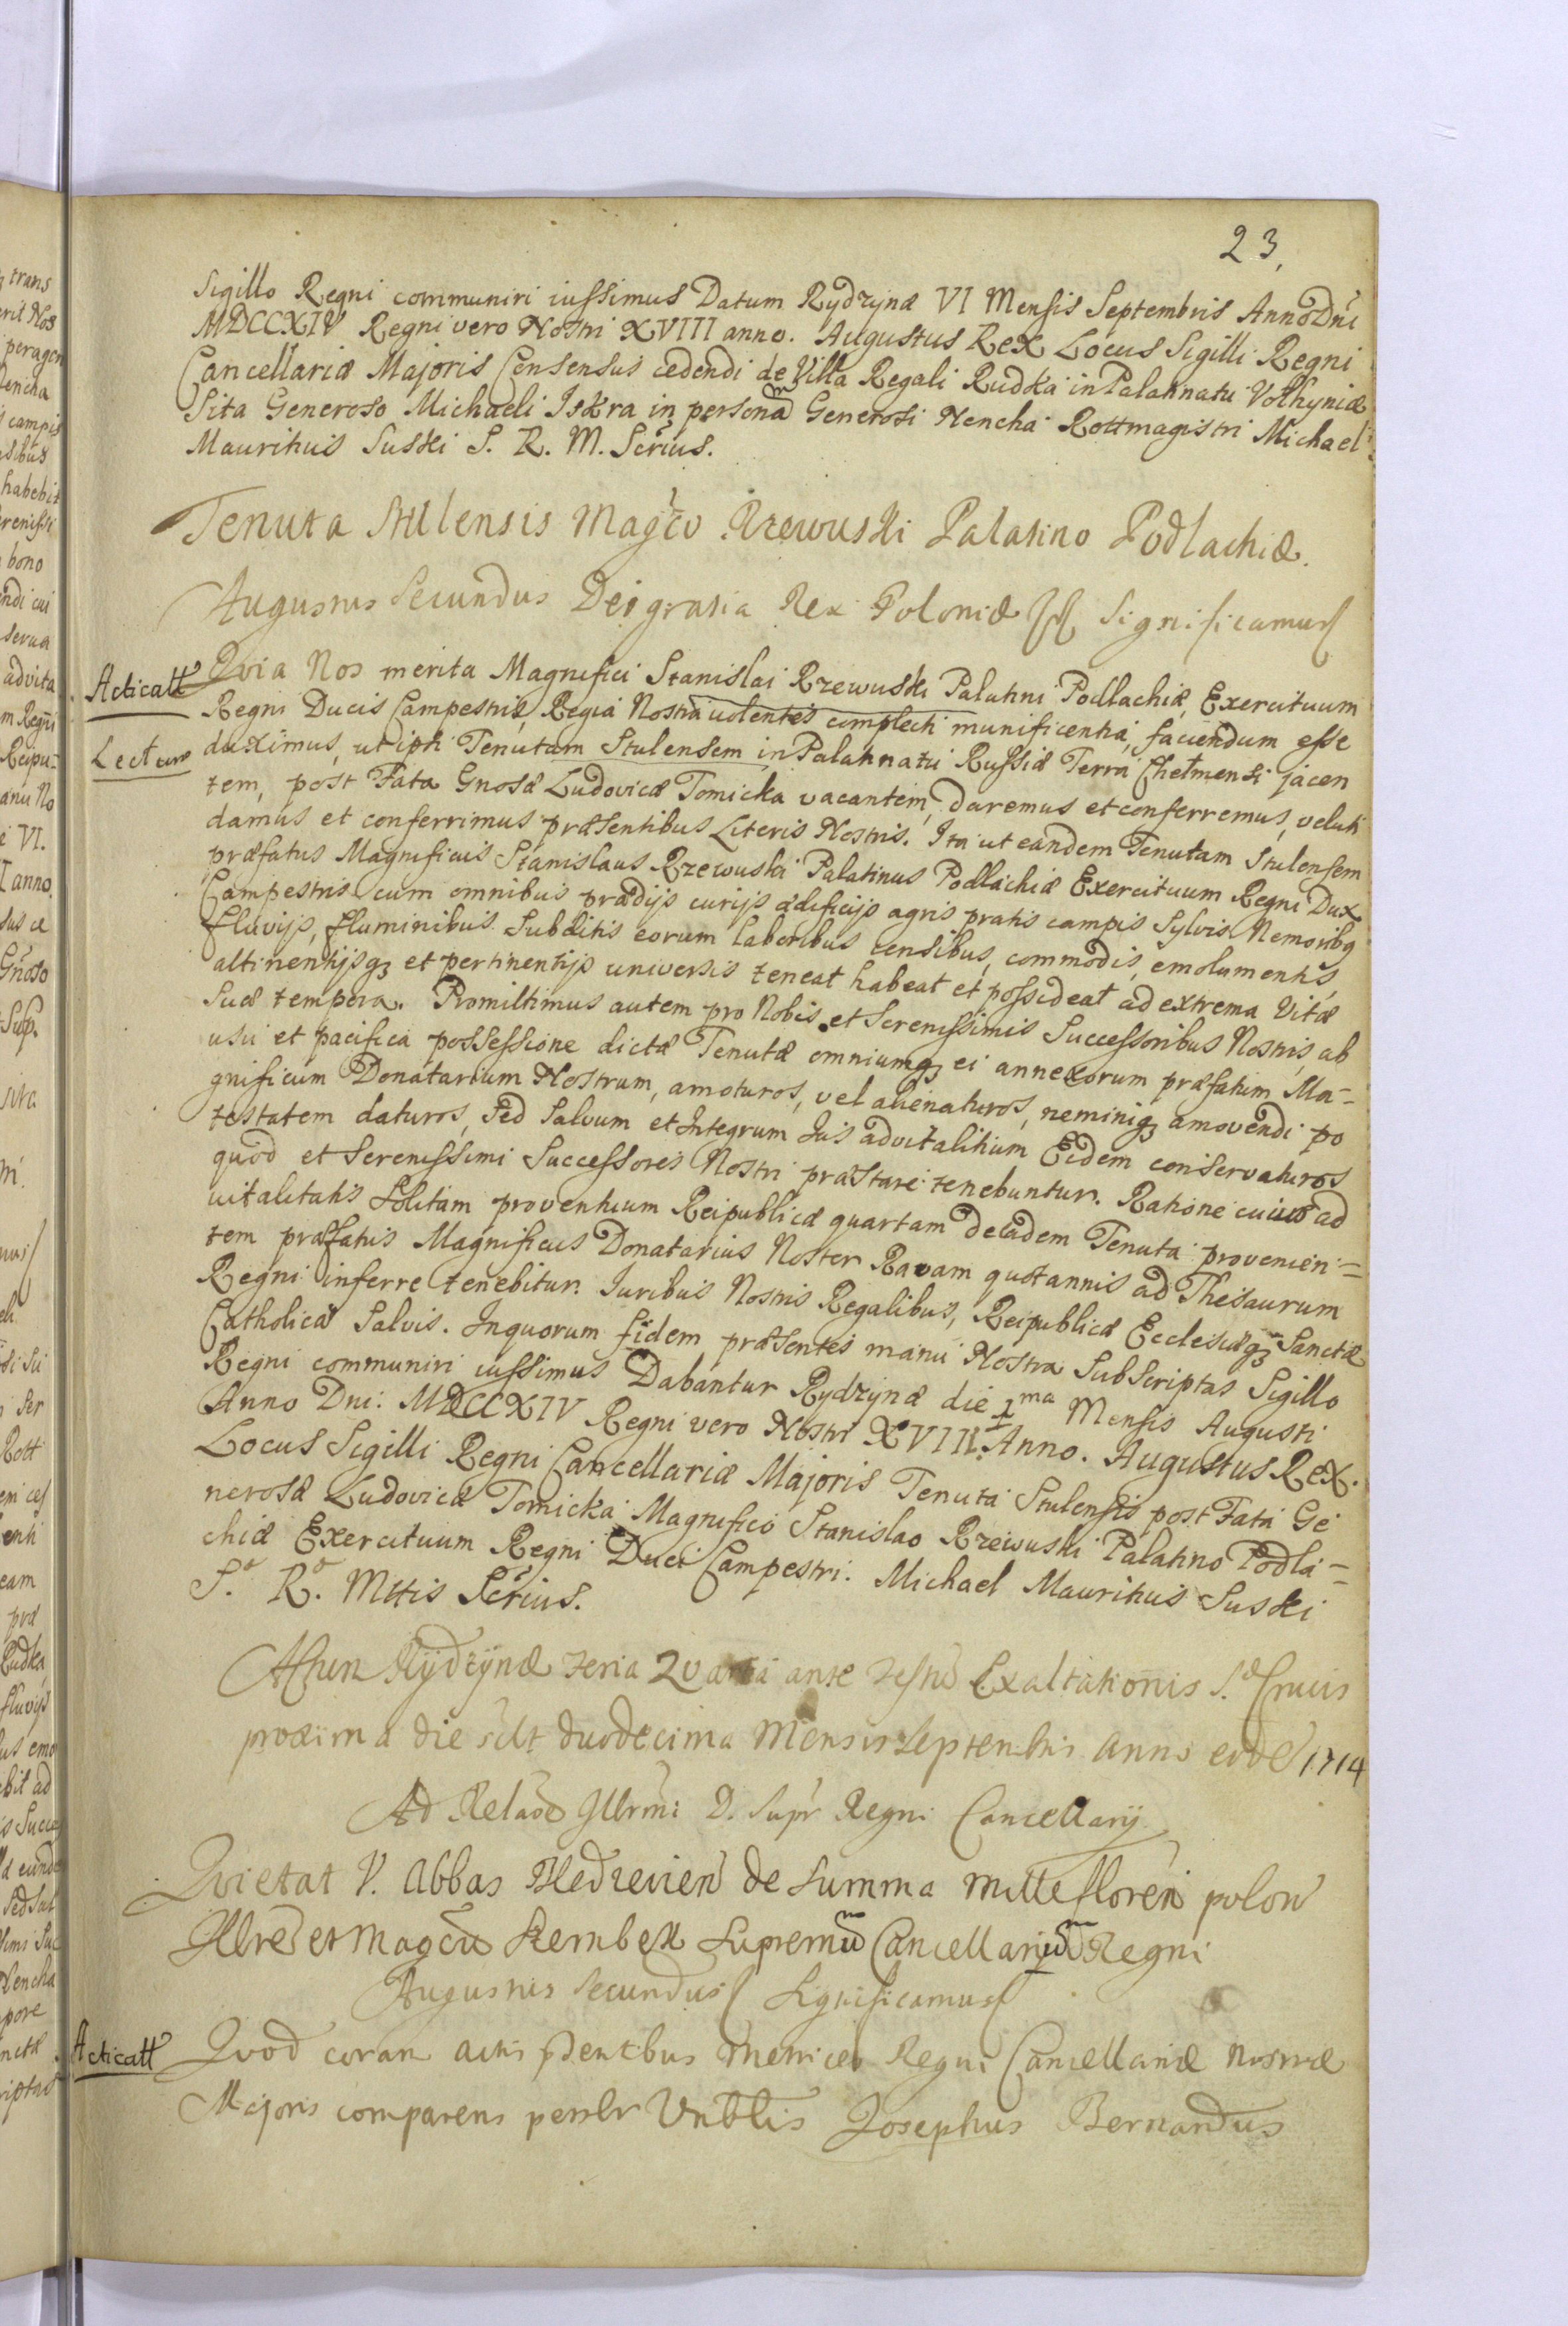 23.
Sigillo Regni communiri iussimus Datum Rydzynæ VI Mensis Septembris Anno Dni
MDCCXIV Regni vero Nostri XVIII anno. Augustus Rex Locus Sigilli Regni
Cancellariæ Majoris Consensus cedendi de Villa Regali Rudka in Palatinatu Volhyniæ
Sita Generoso Michaeli Iskra in personam Generosi Nencha Rottmagistri Michael
Mauritius Suski S. R. M. Scrius.
Tenuta Stulensis Magco Rzewuski Palatino Podlachiæ.
Augustus Secundus Dei gratia Rex Poloniæ Significamus
Acticatt
Quia Nos merita Magnifici Stanislai Rzewuski Palatini Podlachiæ, Exercituum
Regni Ducis Campestris, Regia Nostra volentes complecti munificentia, faciendum esse
Lectum
duximus, ut ipsi Tenutam Stulensem in Palatinatu Russiæ Terra Chelmensi jacen
tem, post Fata Gnosæ Ludovicæ Tomicka vacantem, daremus et conferremus, veluti
damus et conferrimus præsentibus Literis Nostris. Ita ut eandem Tenutam Stulensem
præfatus Magnificus Stanislaus Rzewuski Palatinus Podlachiæ Exercituum Regni Dux
Campestris cum omnibus prædijs curijs ædificijs agris pratis campis Sylvis Nemoribq
fluvijs, fluminibus Subditis eorum laboribus censibus, commodis, emolumentis,
attinentijsq; et pertinentijs universis teneat habeat et possideat ad extrema Vitæ
Suæ tempora. Promittimus autem pro Nobis et Serenissimis Successoribus Nostris, ab
usu et pacifica possessione dictæ Tenutæ omniumq; ei annexorum præfatum Ma-
gnificum Donatarium Nostrum, amoturos, vel alienaturos, neminiq; amovendi po
testatem daturos, Sed Salvum et Integrum Jus advitalitium Eidem conservaturos
quod et Serenissimi Successores Nostri præstare tenebuntur. Ratione cuius ad
vitalitatis Solitam proventuum Reipublicæ quartam de eadem Tenuta provenien=
tem præfatus Magnificus Donatarius Noster Ravam quotannis ad Thesaurum
Regni inferre tenebitur. Juribus Nostris Regalibus, Reipublicæ Ecclesiæq; Sanctæ
Catholicæ Salvis. In quorum fidem præsentes manu Nostra Subscriptas Sigillo
Regni communiri iussimus Dabantur Rydzynæ die 1ma Mensis Augusti
Anno Dni: MDCCXIV Regni vero Nostri XVIII. Anno. Augustus Rex.
Locus Sigilli Regni Cancellariæ Majoris Tenuta Stulensis post Fata Ge
nerosæ Ludovicæ Tomicka Magnifico Stanislao Rzewuski Palatino Podla=
chiæ Exercituum Regni Duci Campestri. Michael Mauritius Suski
S. R. Mttis Scrius.
Actum Rydzynæ Feria Quarta ante Festu Exaltationis S. Crucis
proxima die sclt duodecima Mensis Septembris anno eode 1714
Ad Relaoe Illrmi D. Supr Regni Cancellarij
Quietat V. Abbas Bledzevien de Summa mille floren polon
Illre et Magcu Szembek Supremum Cancellarium Regni
Augustus Secundus Significamus
Acticatt
Quod coram actis pdentibus Metrices Regni Cancellariæ Nostræ
Majoris comparens perslr Vnblis Josephus Bernardus